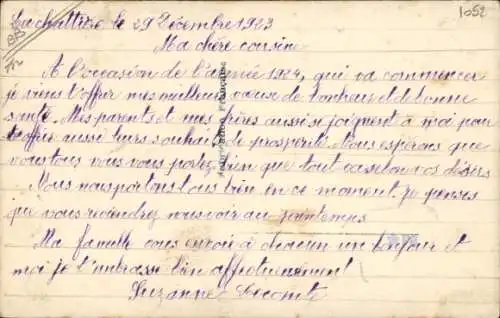 La chattière le 29 Décembre 1923
Ma chère cousine
A l'occasion de l'année 1924, qui va commencer
je viens t'offrir mes meilleurs vœux de bonheur et de bonne
santé. Mes parents et mes frères aussi se joignent à moi pour
t'offrir aussi leurs souhaits de prosperité. Nous espérons que
vous tous vous vous portez bien que tout va selon vos désirs
Nous nous portons tous bien en ce moment. Je penses
que vous reviendrez nous voir au printemps
Ma famille vous envoie à chacun un bonjour et
moi je t'embrasse bien affectueusement!
Suzanne Lecomte
1052